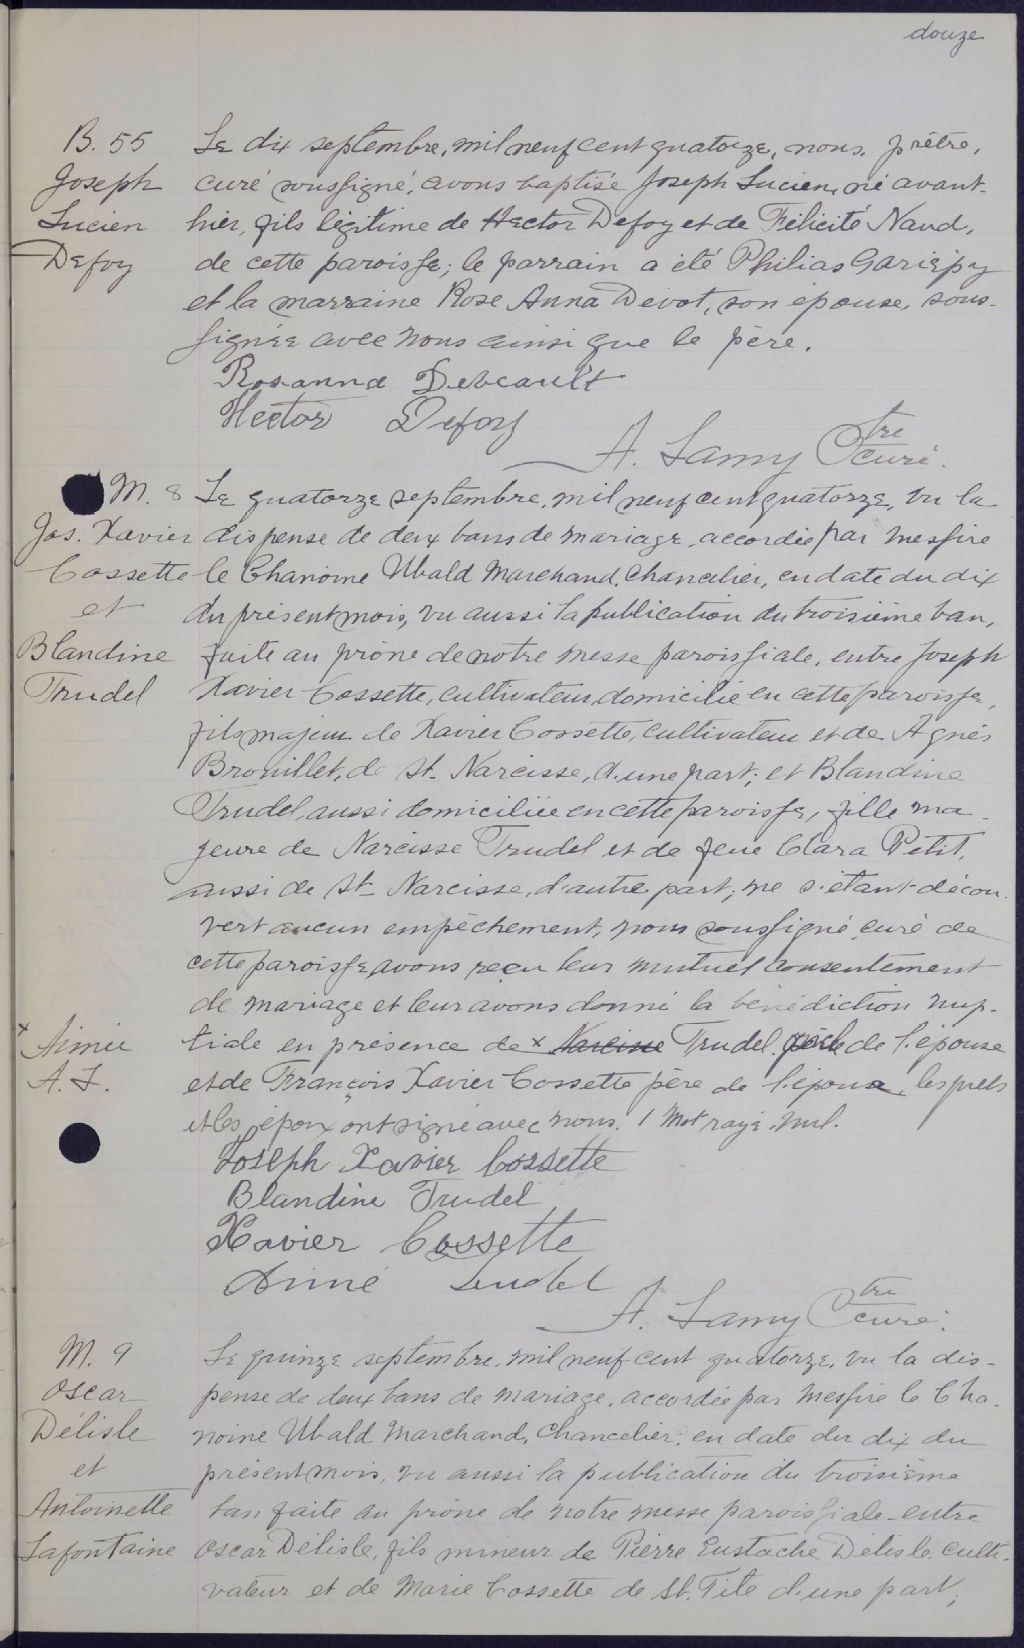 douze
B. 55
Joseph
Lucien
Defoy
Le dix septembre, mil neuf cent quatorze, nous, prêtre,
curé soussigné, avons baptisé Joseph Lucien, né avant-
hier, fils légitime de Hector Defoy et de Félicité Naud,
de cette paroisse; le parrain a été Philias Gariépy
et la marraine Rose Anna Devot, son épouse, sous-
signée avec nous ainsi que le père.
Rosanna
Hector Defoy
A. Lamy Ptre curé.
M. 8
Jos. Xavier
Cossette
et
Blandine
Trudel
Le quatorze septembre, mil neuf cent quatorze, vu la
dispense de deux bans de mariage, accordée par Messire
le Chanoine Ubald Marchand, Chancelier, en date du dix
du présent mois, vu aussi la publication du troisième ban,
faite au prône de notre messe paroissiale, entre Joseph
Xavier Cossette, cultivateur, domicilié en cette paroisse,
fils majeur de Xavier Cossette, cultivateur et de Agnès
Brouillet, de St. Narcisse, d'une part; et Blandine
Trudel, aussi domiciliée en cette paroisse, fille ma-
jeure de Narcisse Trudel et de feue Clara Petit,
aussi de St. Narcisse, d'autre part; ne s'étant décou-
vert aucun empêchement, nous soussigné, curé de
cette paroisse, avons reçu leur mutuel consentement
de mariage et leur avons donné la bénédiction nup-
x Aimée
A. L.
tiale en présence de x Narcisse Trudel, de l'épouse
et de François Xavier Cossette père de l'époux, lesquels
et les époux ont signé avec nous. 1 Mot rayé nul.
Joseph Xavier Cossette
Blandine Trudel
Xavier Cossette
Aimé Trudel
A. Lamy Ptre curé.
M. 9
Oscar
Délisle
et
Antoinette
Lafontaine
Le quinze septembre, mil neuf cent quatorze, vu la dis-
pense de deux bans de mariage, accordée par Messire le Cha-
noine Ubald Marchand, Chancelier, en date du dix du
présent mois, vu aussi la publication du troisième
ban faite au prône de notre messe paroissiale entre
Oscar Délisle, fils mineur de Pierre Eustache Délisle, culti-
vateur et de Marie Cossette de St. Tite d'une part;